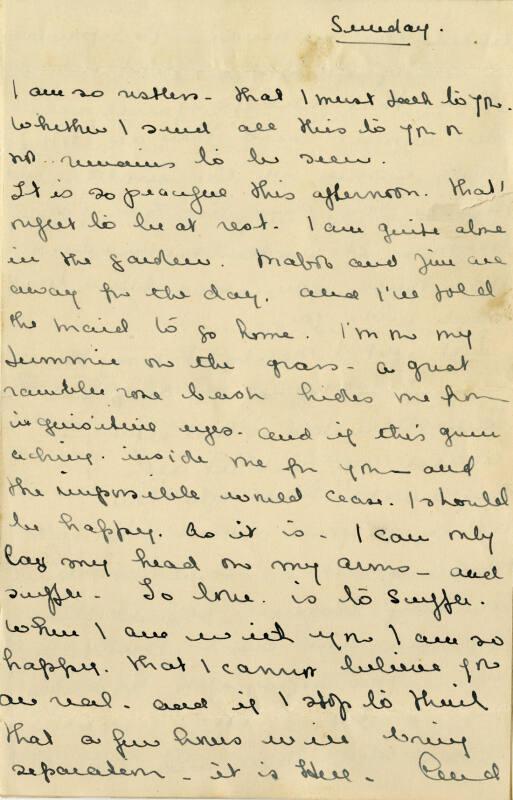 Sunday.
I am so restless - that I must talk to you.
Whether I send all this to you or
not.. remains to be seen.
It is so peaceful this afternoon. that I
ought to be at rest. I am quite alone
in the garden. and Jim are
away for the day. and I've told
the maid to go home. I'm on my
tummie on the grass - a great
rambler rose bush hides me from
inquisitive eyes. and if this
aching. inside me for you - and
the impossible would cease. I should
be happy. As it is - I can only
lay my head on my arms - and
suffer - To love. is to suffer.
When I am with you I am so
happy. that I cannot believe you
are real - and if I stop to think
that a few hours will bring
separation - it is Hell - And